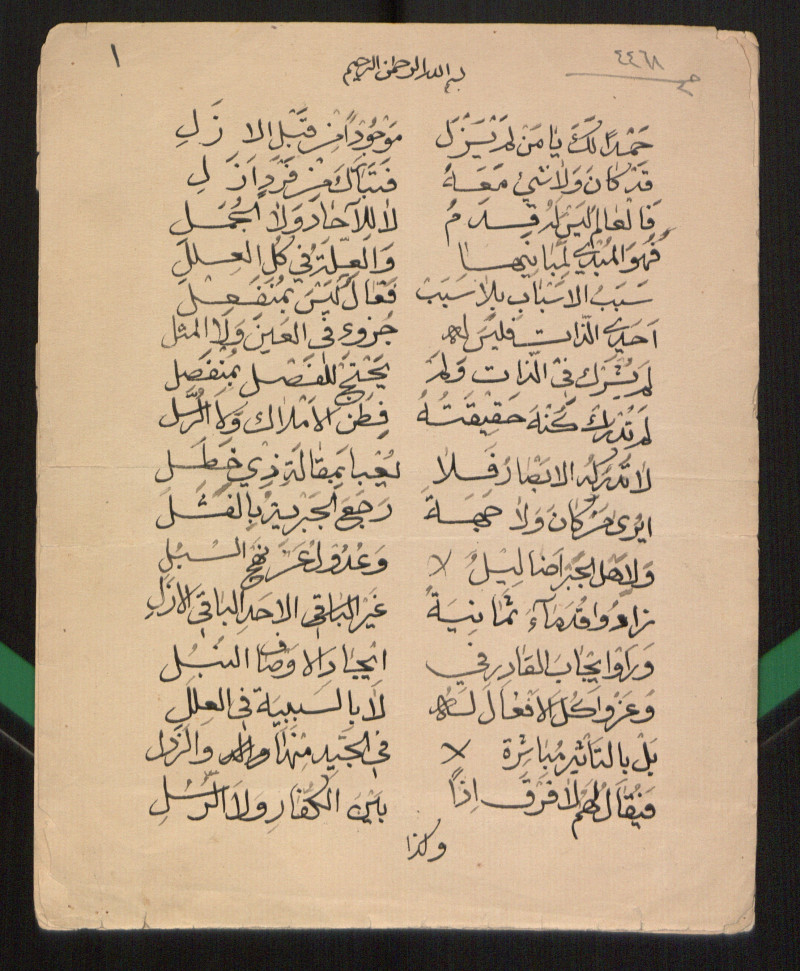 ١
بسم الله الرحمن الرحيم
٤٤٦٨
حَمْدًا لَكَ يَا مَنْ لَمْ يَزَلِ مَوْجُوْدًا مِنْ قَبْلِ الازَلِ
قَدْ كَانَ وَلَا شَيْءٌ مَعَهُ فَتَبَارَكَ مِنْ فَرْدٍ اَزَلِ
فَالْعَالَمُ لَيْسَ لَهُ قِدَمٌ لَا لِلآحَادِ وَلَا الجُمَلِ
فَهُوَ المُبْدِي لِمَبَانِيهَا وَالعِلَّةُ فِي كُلِّ العِلَلِ
سَبَبُ الاسْبَابِ بِلَا سَبَبٍ فَعَّالٌ لَيْسَ بمُنْفَعِلِ
اَحَدِيّ الذّاتِ فَلَيْسَ له جُزْوءٌ فِي العَيْنِ وَلَا المثلِ
لَمْ يُشْرَكْ فِي الذّات وَلَمْ يَحْتَجْ لِلْفَصْلِ بمُنْفَصِلِ
لَمْ تُدْرِكْ كُنْهَ حَقِيْقَتُهُ فِطَنُ الاَمْلَاكِ وَلَا الرُّسُلِ
لَا تُدْرِكُهُ الابْصَارُ فَلَا يُعْبَا بِمَقَالَةِ ذِي خَطَلِ
ايُرى مَنْ كَانَ وَلَا جِهَةً رَجَعَ الجَبْرِيَّةُ بِالفَشَلِ
وَلاهْلِ الجَبْرِ اَضَالِيْلُ وَعُدُوْلٌ عَنْ نَهْجِ السُبُلِ
زَادُوا قُدَمَآءَ ثَمَانِيَةً غَيْرَ البَاقِي الاحَدِ البَاقِي الازَلِ
وَرَاَوْا اِيْجَابَ القَادِرِ فِي ايْجَادِ الاوْصَافِ النُبُلِ
وَعَزَوْا كُلَّ الاَفْعَالِ لَهُ لَا بِالسَبَبِيَّةِ فِي العِلَلِ
بَلْ بِالتَاْثِيْرِ مُبَاشَرَةً فِي الجَيِّدِ مِنْهَا والرذل
فَيُقَالُ لَهُمْ لَا فَرْقَ اِذًا بَيْنَ الكُفَّارِ وَلَا الرُّسُلِ
وكذا